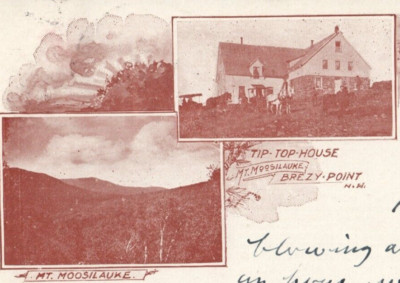 TIP-TOP-HOUSE
MT. MOOSILAUKE
BREZY-POINT
N.H.
MT. MOOSILAUKE.
blowing a
an hour